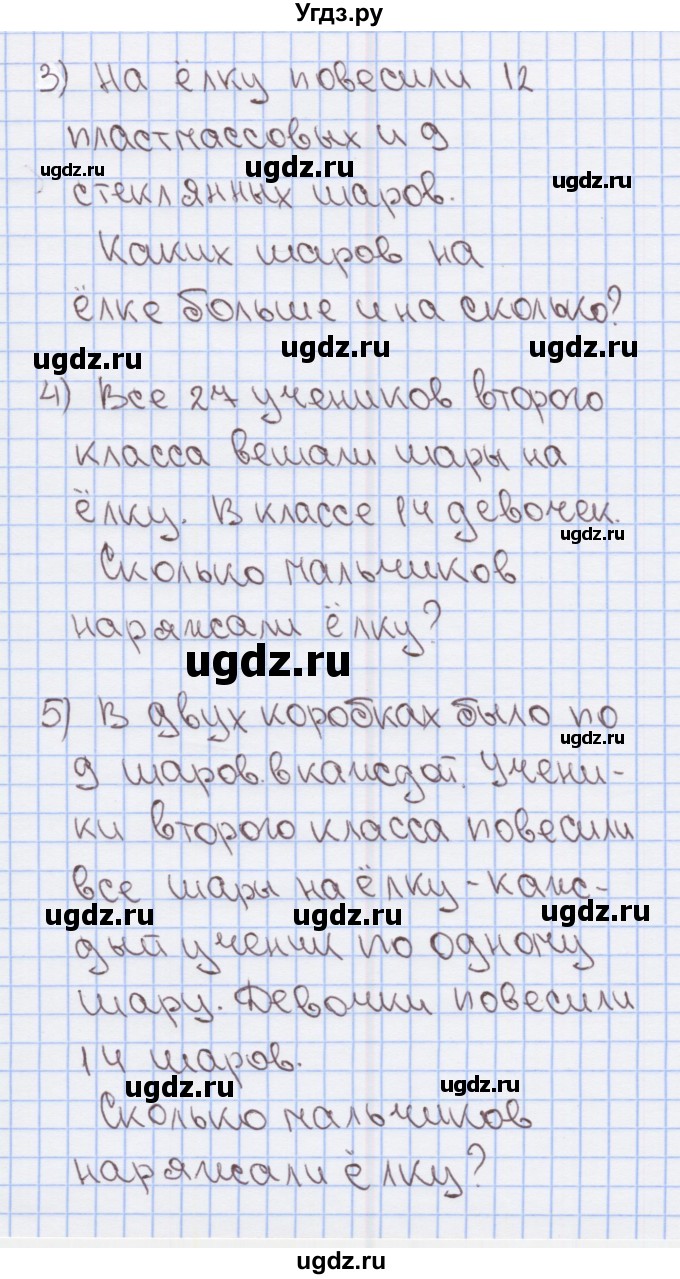 Угдз.ру
3) На ёлку повесили 12
пластмассовых и 9
ugdz.ru ugdz.ru ugdz.ru
стеклянных шаров.
Каких шаров на
ёлке больше и на сколько?
ugdz.ru ugdz.ru ugdz.ru
4) Все 27 учеников второго
класса вешали шары на
ёлку. В классе 14 девочек.
ugdz.ru
Сколько мальчиков
наряжали ёлку?
ugdz.ru
5) В двух коробках было по
ugdz.ru
9 шаров в каждой. Учени-
ки второго класса повесили
все шары на ёлку - каж-
ugdz.ru ugdz.ru ugdz.ru
дый ученик по одному
шару. Девочки повесили
14 шаров.
ugdz.ru ugdz.ru
Сколько мальчиков
наряжали ёлку?
ugdz.ru